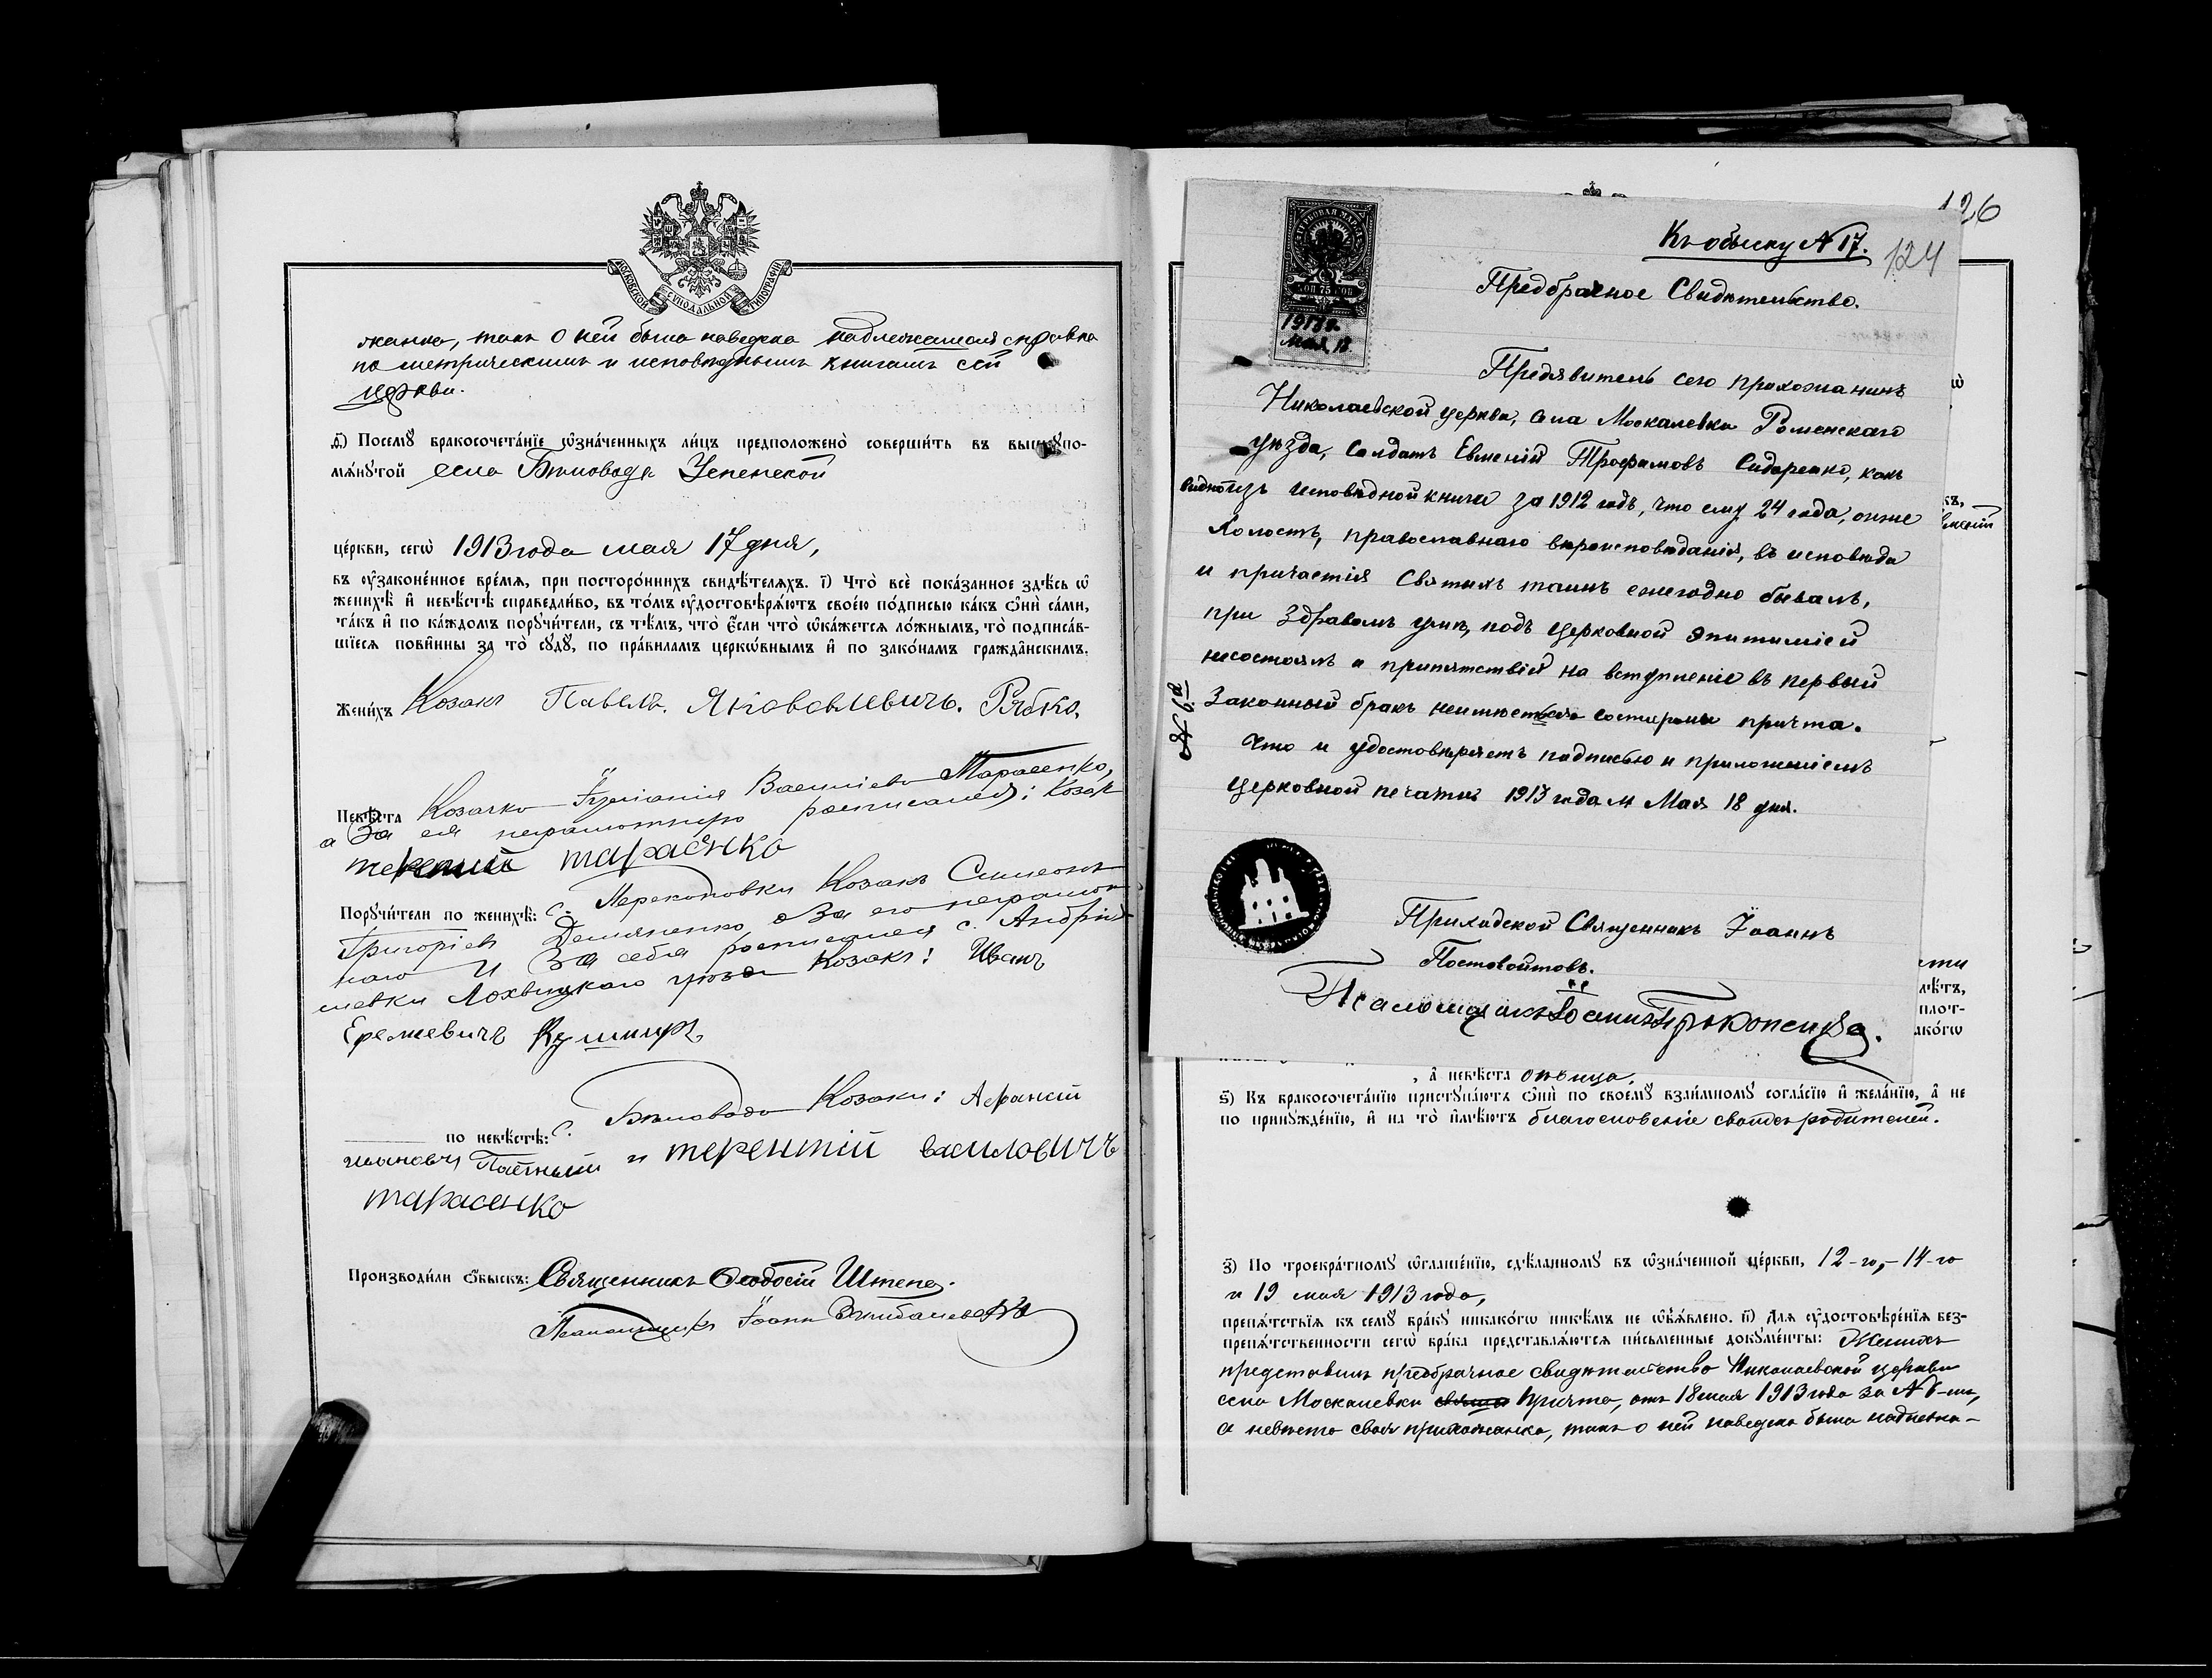 МОСКОВСКОЙ СѴНОДАЛЬНОЙ ТИПОГРАФІИ
жанка, такъ о ней была наведена надлежащая справка
по метрическимъ и исповѣднымъ книгамъ сей
церкви.
д҃) Посемꙋ̀ бракосочета́нїе ѡ҆зна́ченныхъ ли́цъ предположено̀ соверши́ть въ вышеꙋпо-
мѧ́нꙋтой села Бѣловодъ Успенской
це́ркви, сегѡ̀ 1913 года мая 17 дня,
въ ᲂу҆зако́нённое вре́мѧ, при посторо́ннихъ свидѣ́телѧхъ. і҃) Что̀ всѐ пока́занное здѣ́сь ѡ҆
женихѣ̀ и҆ невѣ́стѣ справедли́во, въ то́мъ ᲂу҆достовѣрѧ́ютъ свое́ю по́дписью ка́къ ѻ҆нѝ са́ми,
та́къ и҆ по ка́ждомъ порꙋчи́тели, съ тѣ́мъ, что̀ є҆́сли что̀ ѡ҆ка́жетсѧ ло́жнымъ, то̀ подписа́в-
шїесѧ пови́нны за то̀ сꙋдꙋ̀, по пра́виламъ церко́внымъ и҆ по зако́намъ гражда́нскимъ.
Жени́хъ Козакъ Павелъ Яковлевичъ Рябко,
Невѣ́ста Козачка Іуліанія Васильева Тарасенко,
а За ея неграмотную росписался: Козак
терентій тарасенко
Порꙋчи́тели по женихѣ̀: с. Перекоповки Козакъ Симеонъ
Григоріевъ Демяненко, а За его неграмот
наго и За себя росписался с. Андрія
шевки Лохвицкаго уѣзда Козакъ: Иванъ
Еремѣевичъ Кушниръ
по невѣ́стѣ: с. Бѣловодъ Козаки: Афанасій
и терентій василовичъ
тарасенко
Производи́ли ѻ҆́быскъ: Священникъ Ѳеодосій Штепа.
Псаломщикъ Іоаннъ
126
124
Къ обыску № 17.
КОП 75 КОП
1913 г.
мая 18
Предбрачное Свидѣтельство.
Предявитель сего прихожанинъ
Николаевской церкви, села Москалевки Роменскаго
уѣзда, Солдатъ Евменій Трофимовъ Сидоренко, какъ
видно изъ исповѣдной книги за 1912 годъ, что ему 24 года, онже
холостъ, православнаго вѣроисповѣданія, въ исповѣди
и причастія Святыхъ таинъ ежегодно бывалъ,
при здравомъ умѣ, подъ церковной эпитиміей
несостоялъ и припятствій на вступленіе въ первый
Законный бракъ неимѣется состороны причта.
Что и удостовѣряетъ подписью и приложеніемъ
церковной печати 1913 года м Мая 18 дня.
№ 6й
Приходской Священникъ Іоаннъ
Постовойтовъ.
Псаломщикъ Іоаннъ Прокопенко.
, а҆ невѣ́ста дѣвица.
ѕ҃) Къ бракосочета́нїю пристꙋпа́ютъ ѻ҆нѝ по своемꙋ̀ взаи́мномꙋ согла́сїю и҆ жела́нїю, а҆ не
по принꙋжде́нїю, и҆ на то̀ и҆мѣ́ютъ благословеніе своихъ родителей.
з҃) По троекра́тномꙋ ѡ҆глаше́нїю, сдѣ́ланномꙋ въ ѡ҆зна́ченной це́ркви, 12-го, 14-го
и 19 мая 1913 года,
препѧ́тствїѧ къ семꙋ̀ бра́кꙋ никако́гѡ никѣ́мъ не ѡ҆б̾ѧ́влено. и҃) Длѧ ᲂу҆достовѣре́нїѧ без-
препѧ́тственности сегѡ̀ бра́ка представлѧ́ютсѧ пи́сьменные докꙋме́нты: Женихъ
представилъ предбрачное свидѣтельство Николаевской церкви
села Москалевки причта, отъ 18 мая 1913 года за № 6-мъ,
а невѣста своя прихожанка, такъ о ней наведена была надлежа-